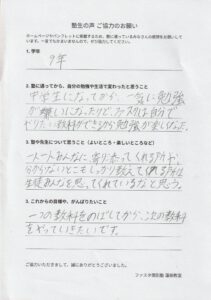 塾生の声 ご協力のお願い
ホームページやパンフレットに掲載するため、塾に通っているみなさんの感想をお願いして
います。一言でもかまいませんので、ぜひ協力してください。
1. 学年
9年
2. 塾に通ってから、自分の勉強や生活で変わったと思うこと
中学生になってから、一気に勉強
が難しくなったけど、ファスタは自分で
やりたい教科ができるから勉強が楽しくなった。
3. 塾や先生について思うこと(よいところ・楽しいところなど)
一人一人みんなに寄り添ってくれる所や、
分からないところもしっかり教えてくれる所は
生徒みんなを思ってくれているなと思う。
4. これからの目標や、がんばりたいこと
一つの教科をのばしてから、次の教科
をやっていきたいです。
ご協力いただきまして、誠にありがとうございました。
ファスタ個別塾